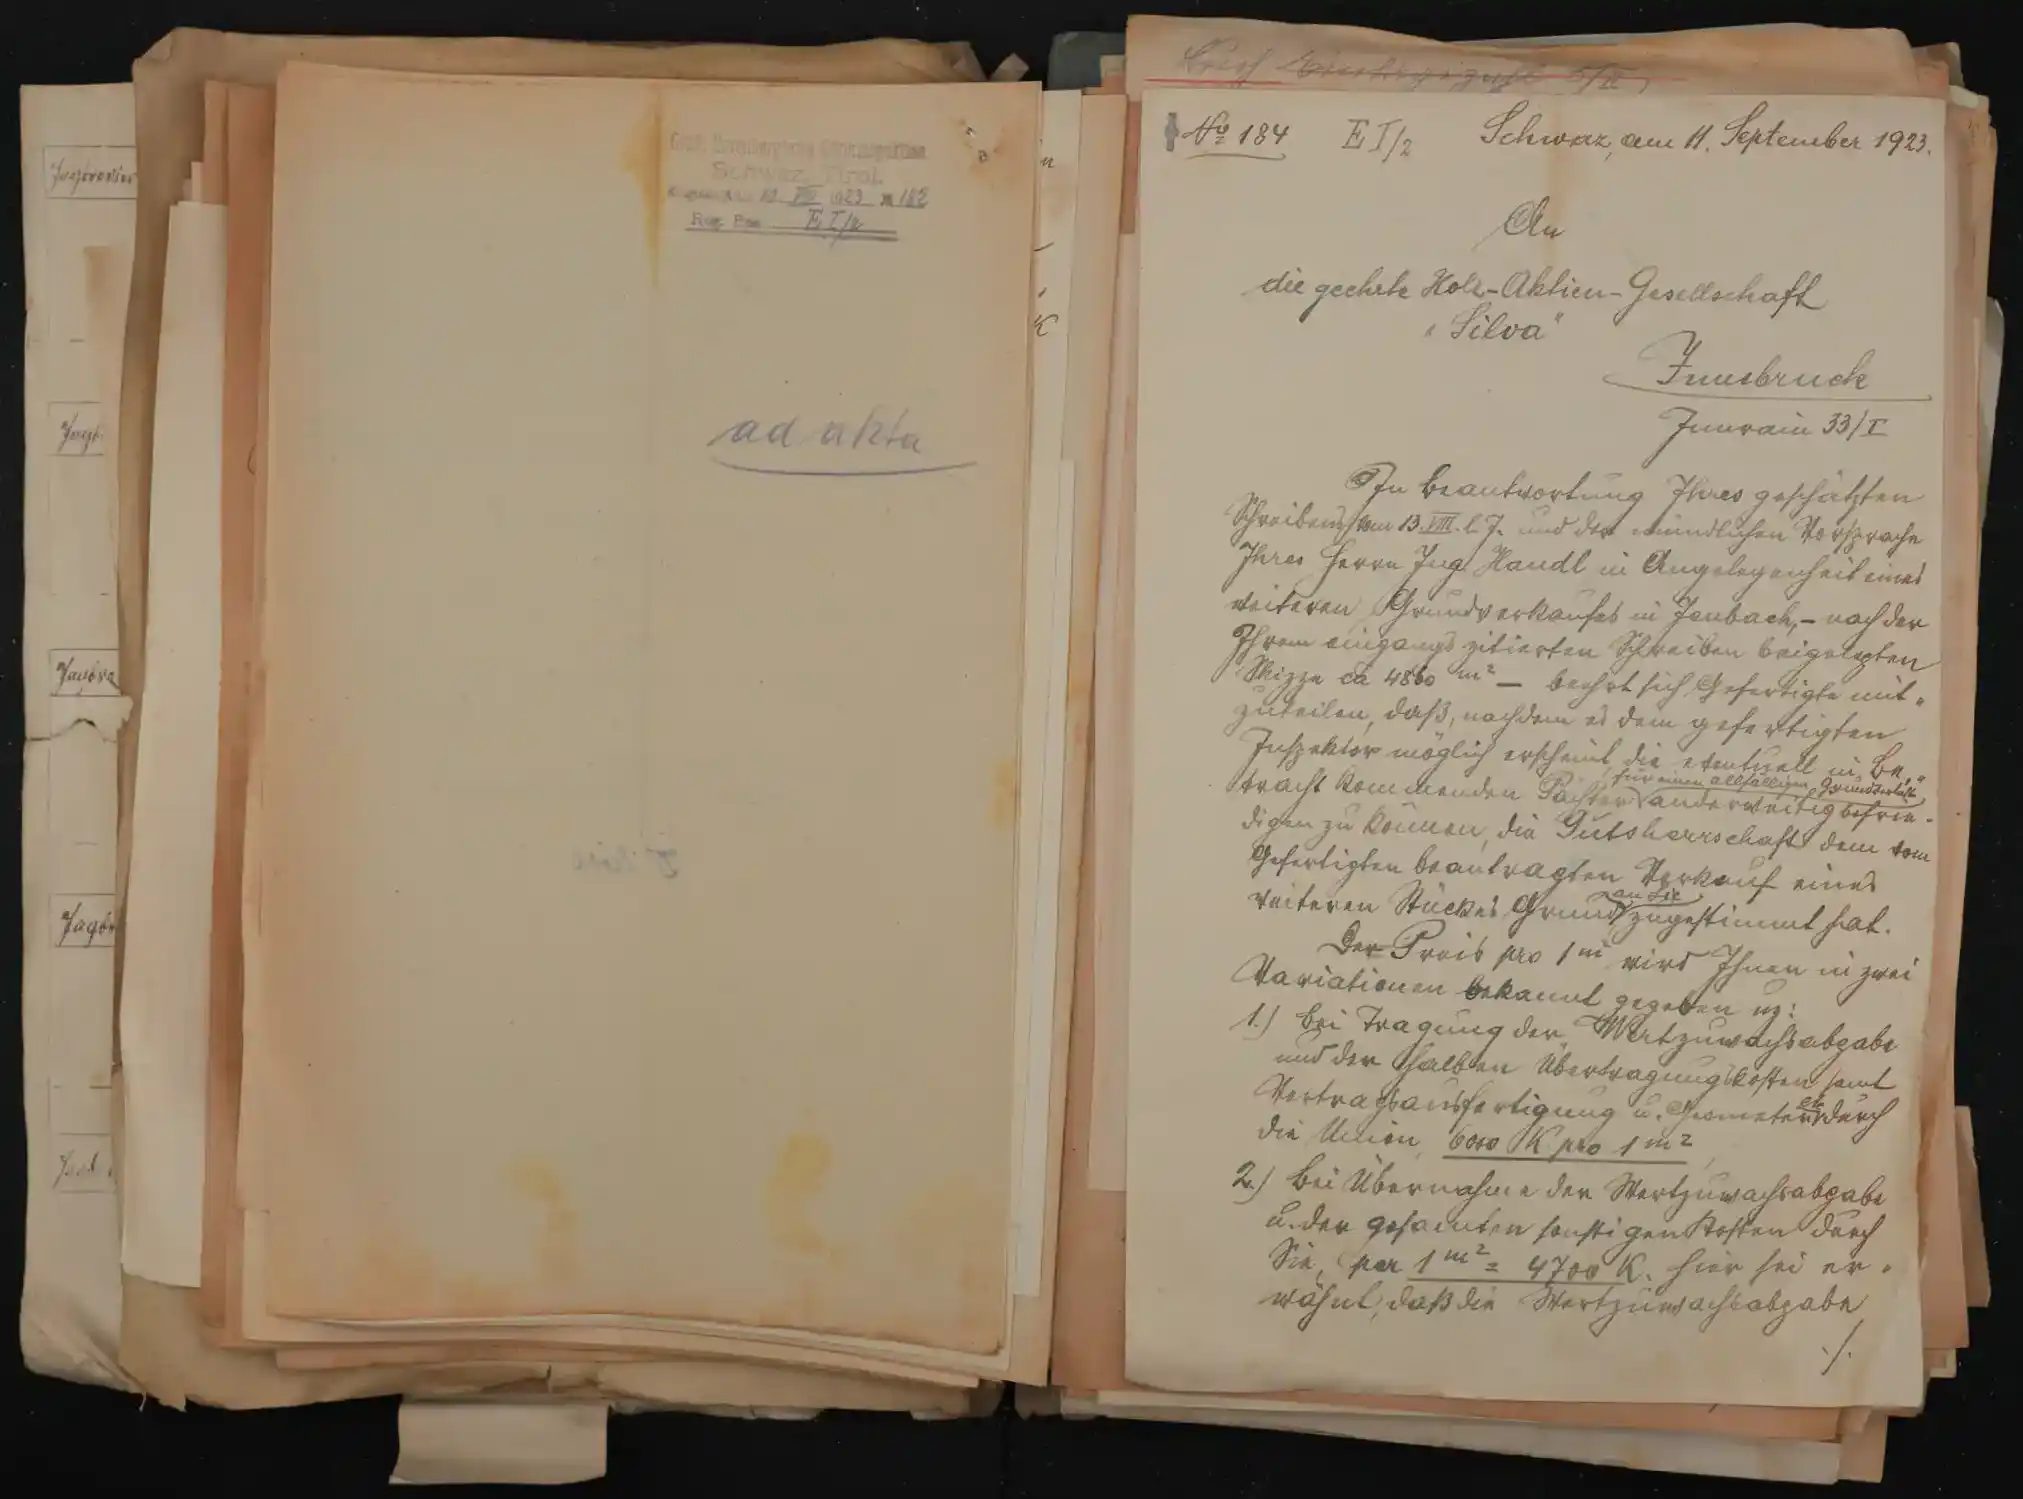 Jagdrevier
Jagd
Jagdre
Jagdr
Schwaz, Tirol.
10. VIII 1923 № 182
Reg. Pos. E I/2
ad akta
№ 184 E I/2 Schwaz, am 11. September 1923.
An
die geehrte Holz-Aktien-Gesellschaft
"Silva"
Innsbruck
Innrain 33/I
In Beantwortung Ihres geschätzten
Schreibens vom 13. VIII. l. J. und der mündlichen Vorsprache
Ihres Herrn Ing. Handl in Angelegenheit eines
weiteren Grundverkaufes in Jenbach, – nach der
Ihrem eingangs zitierten Schreiben beigelegten
Skizze ca 4860 m² – beehrt sich Gefertigte mit-
zuteilen, daß, nachdem es dem gefertigten
Inspektor möglich erscheint, die eventuell in Be-
für einen allfälligen Grundverlust
tracht kommenden Pächter anderweitig befrie-
digen zu können, die Gutsherrschaft dem vom
Gefertigten beantragten Verkauf eines
an Sie
weiteren Stückes Grund zugestimmt hat.
Der Preis pro 1 m wird Ihnen in zwei
Variationen bekannt gegeben uz:
1.) bei Tragung der Wertzuwachsabgabe
und der halben Übertragungskosten samt
Vertragsausfertigung u. Geometer etc durch
die Union 6000 K pro 1 m²,
2.) bei Übernahme der Wertzuwachsabgabe
u. der gesamten sonstigen Kosten durch
Sie, per 1 m² = 4700 K. Hier sei er-
wähnt, daß die Wertzuwachsabgabe
./.